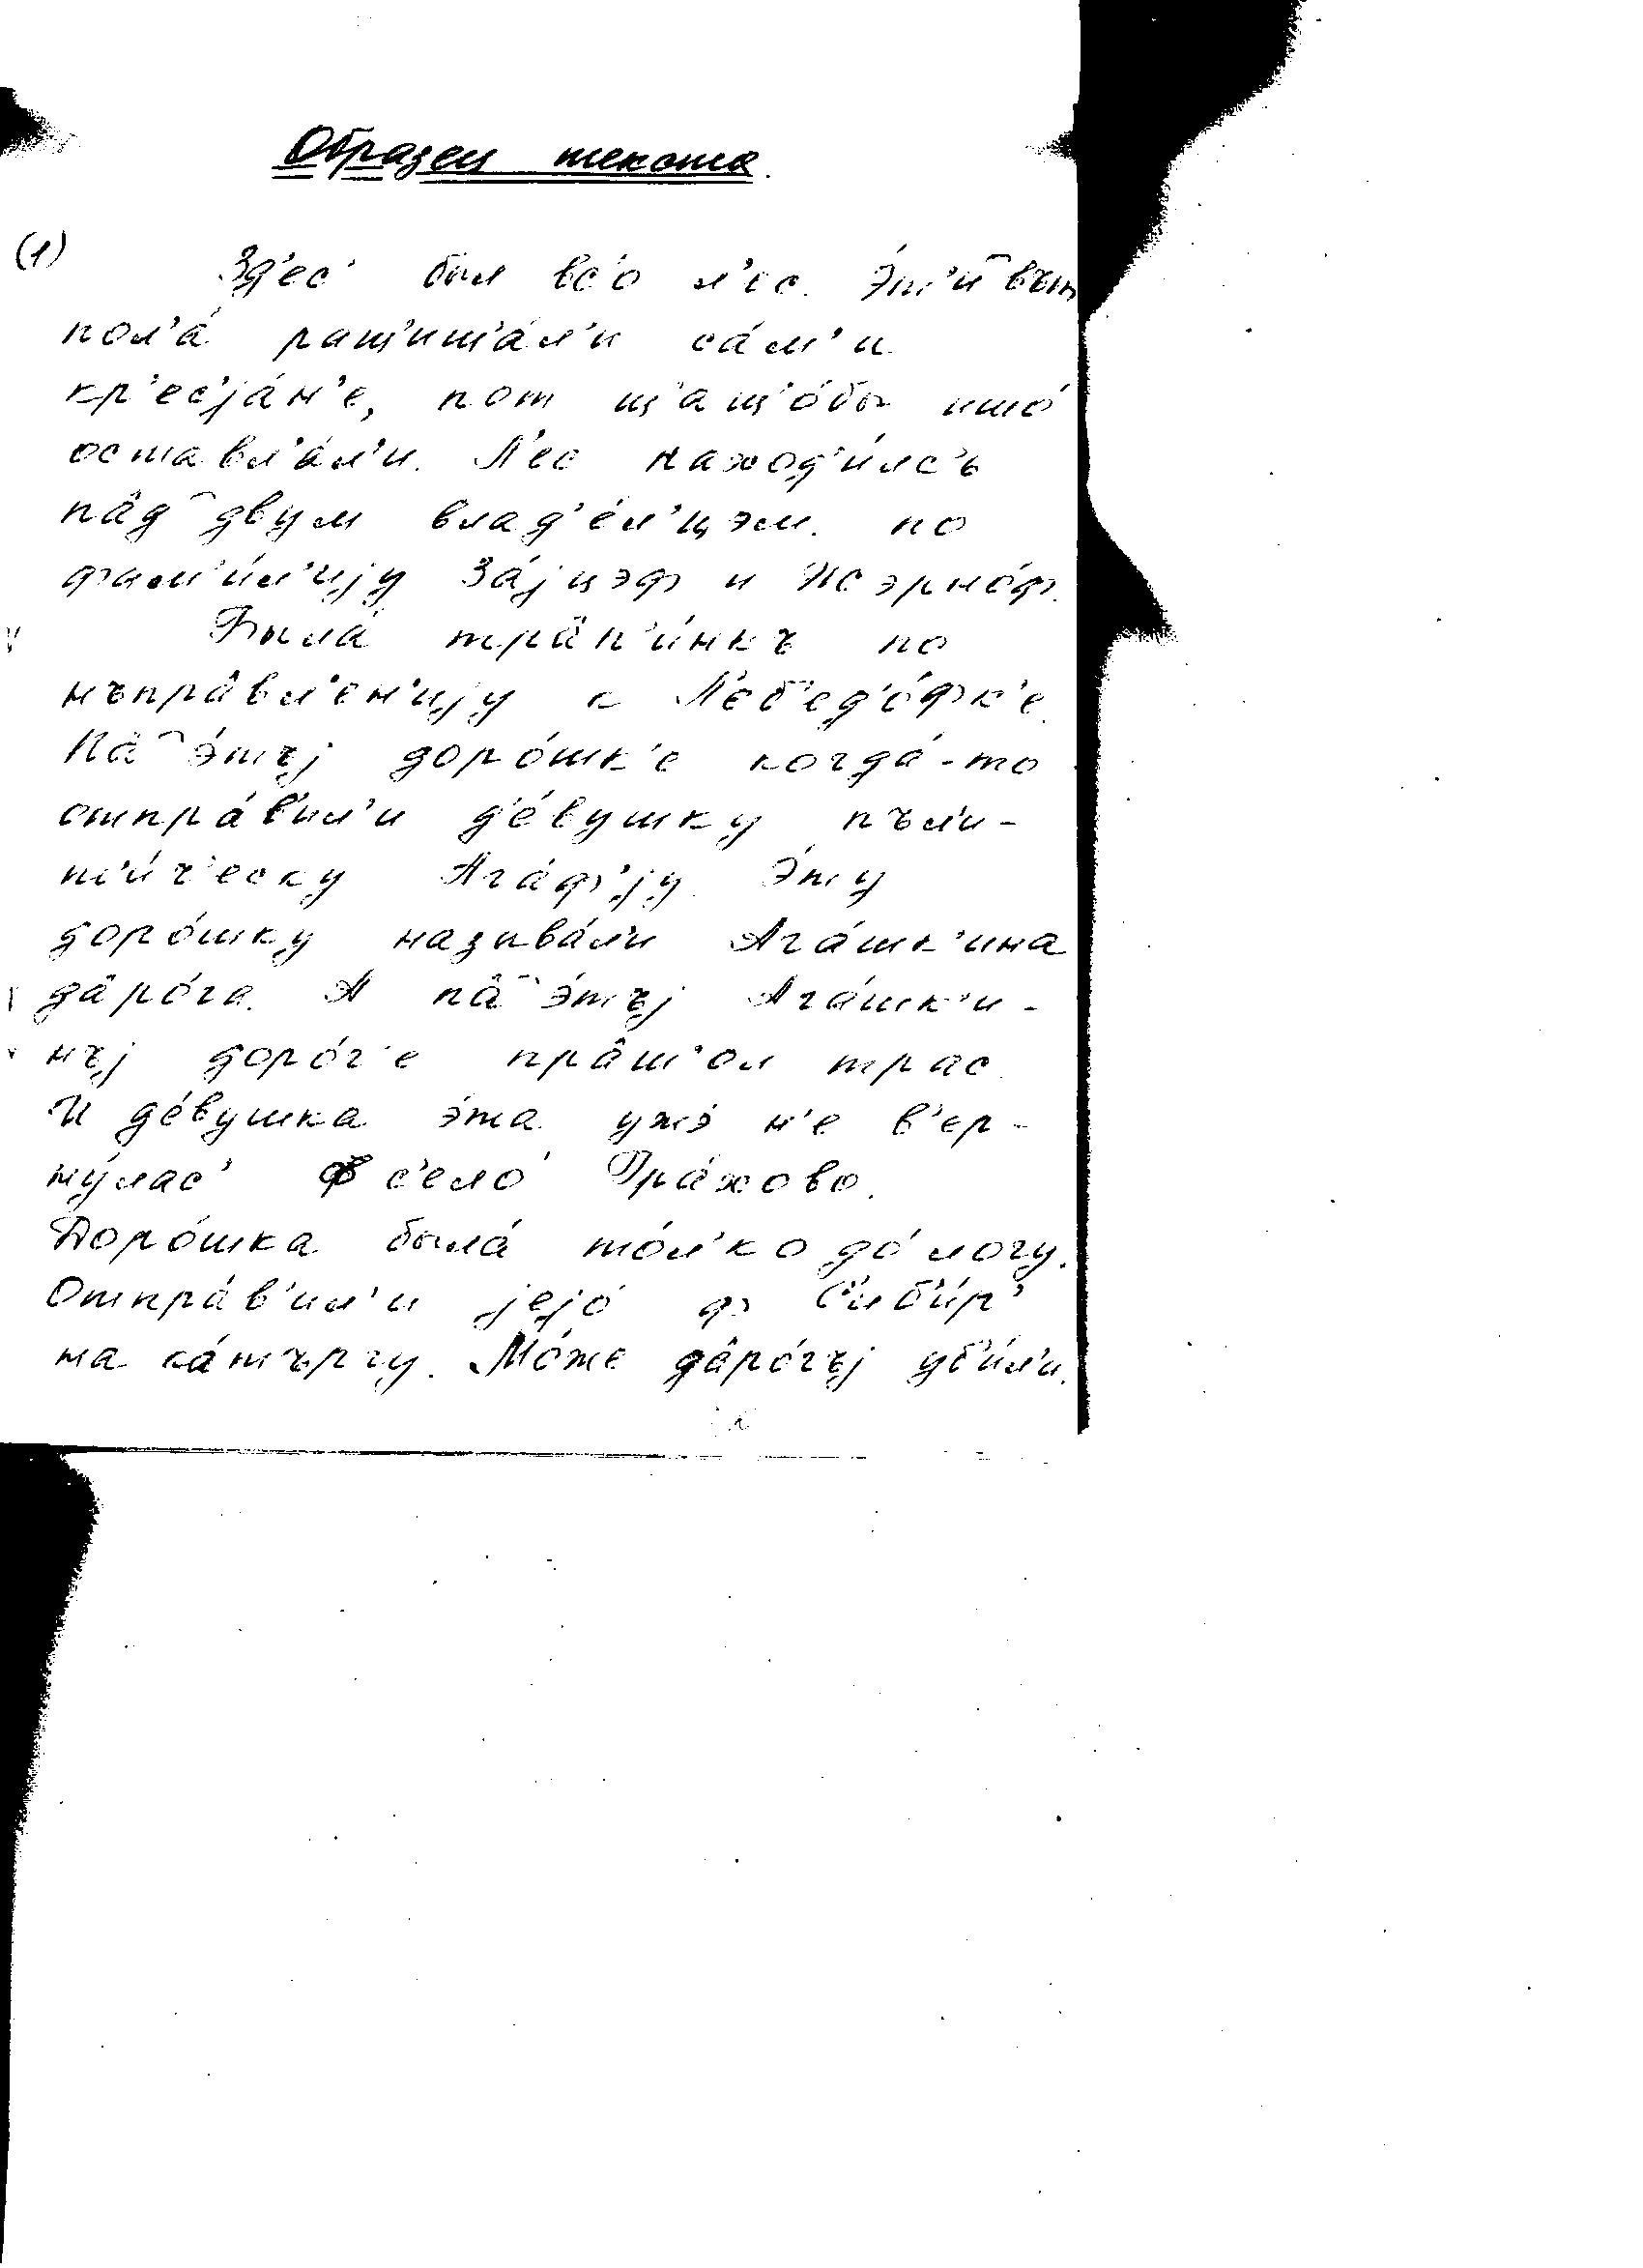 Образец текста.
(1) Зд'ес' был вс'о л'ес. Э́т'и͡ вът
пол'а́ ращ'ищ'а́л'и са́м'и
кр'ес'jа́н'е, пот щ'ащ'о́бы ишо́
оставл'а́л'и. Л'ес наход'и́лс'ъ
па̂д͡ двум влад'е́л'цэм. по
фам'и́л'иjу За́jцэф и Жэрно́ф.
Была́ тра̂п'и́нкъ по
нъпра̂вл'ен'иjу к Л'еб'ед'о́фк'е.
Па̂͡ э́тъj доро́шк'е когда́-то
отпра́в'ил'и д'е́вушку пъл'и-
т'и́ч'еску Ага́ф'jу. Э́ту
доро́шку назива́л'и Ага́шк'ина
да̂ро́га. А па̂͡ э́тъj Ага́шк'и-
нъj доро́г'е пра̂ш'ол трас.
И д'е́вушка э́та ужэ́ н'е в'ер-
ну́лас' ф с'ело́ Гра́хово.
Доро́шка была́ то́л'ко до́ логу.
Отпра́в'ил'и jejо́ ф С'иб'и́р'
на ка́търгу. Мо́же да̂ро́гъj уб'и́л'и.